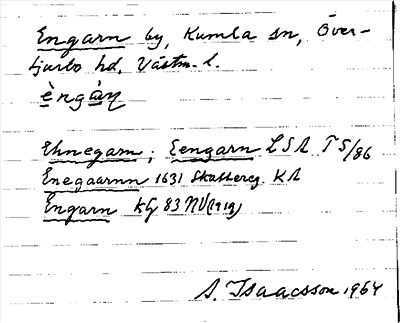 Engarn by, Kumla sn, Över-
tjurbo hd, Västm. l.
èngàṇ
Ehnegarn; Eengarn LSA T5/86
Enegaarnn 1631 Skattereg. KA
Engarn KG 83 NV(1919)
S. Isaacsson 1964